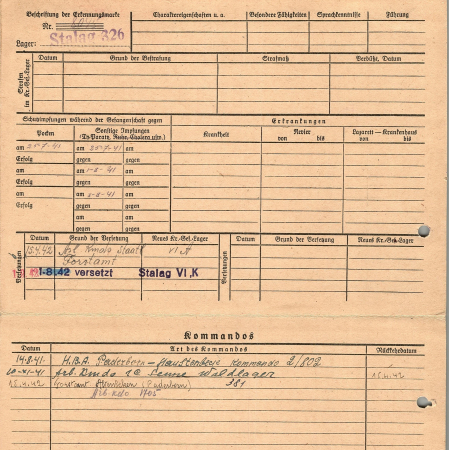 Beschriftung der Erkennungsmarke
Nr.
Lager: Stalag 326
Charaktereigenschaften u. a.
Besondere Fähigkeiten
Sprachkenntnisse
Führung
Strafen im Kr.-Gef.-Lager
Datum
Grund der Bestrafung
Strafmaß
Verbüßt, Datum
Schutzimpfungen während der Gefangenschaft gegen
Erkrankungen
Pocken
Sonstige Impfungen
(Ty-Paraty, Ruhr, Cholera usw.)
Krankheit
Revier
von bis
Lazarett — Krankenhaus
von bis
am 25-7-41 am 25-7-41 am
Erfolg gegen gegen
am am 1-8-41 am
Erfolg gegen gegen
am am -8-41 am
Erfolg gegen gegen
am am
gegen gegen
am am
gegen gegen
Versetzungen
Datum
Grund der Versetzung
Neues Kr.-Gef.-Lager
Versetzungen
Datum
Grund der Versetzung
Neues Kr.-Gef.-Lager
15.4.42 Arb. Kmdo Staatl. VI A
Forstamt
1-8.42 versetzt Stalag VI,K
Kommandos
Datum
Art des Kommandos
Rückkehrdatum
14.8.41. H.B.A. Paderborn — Haustenbeck Kommando 2/802
-41 Arb. Kmdo Senne Wildlager 15.4.42
15.4.42 Forstamt (Paderborn) 381
Arb. Kdo 1705